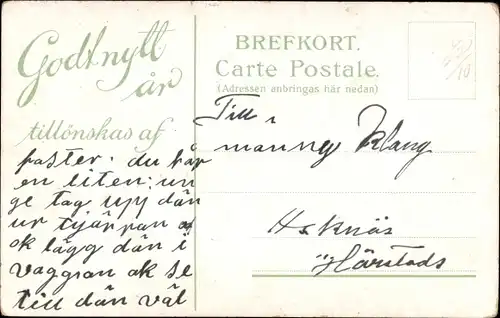 Godt nytt
år
tillönskas af
faster. du får
en liten: un
ge tag upp dän
ur tjärran
ok lägg dän i
vaggan ok se
till dän väl
BREFKORT.
Carte Postale.
(Adressen anbringas här nedan)
Till
manny Klang
Härstads